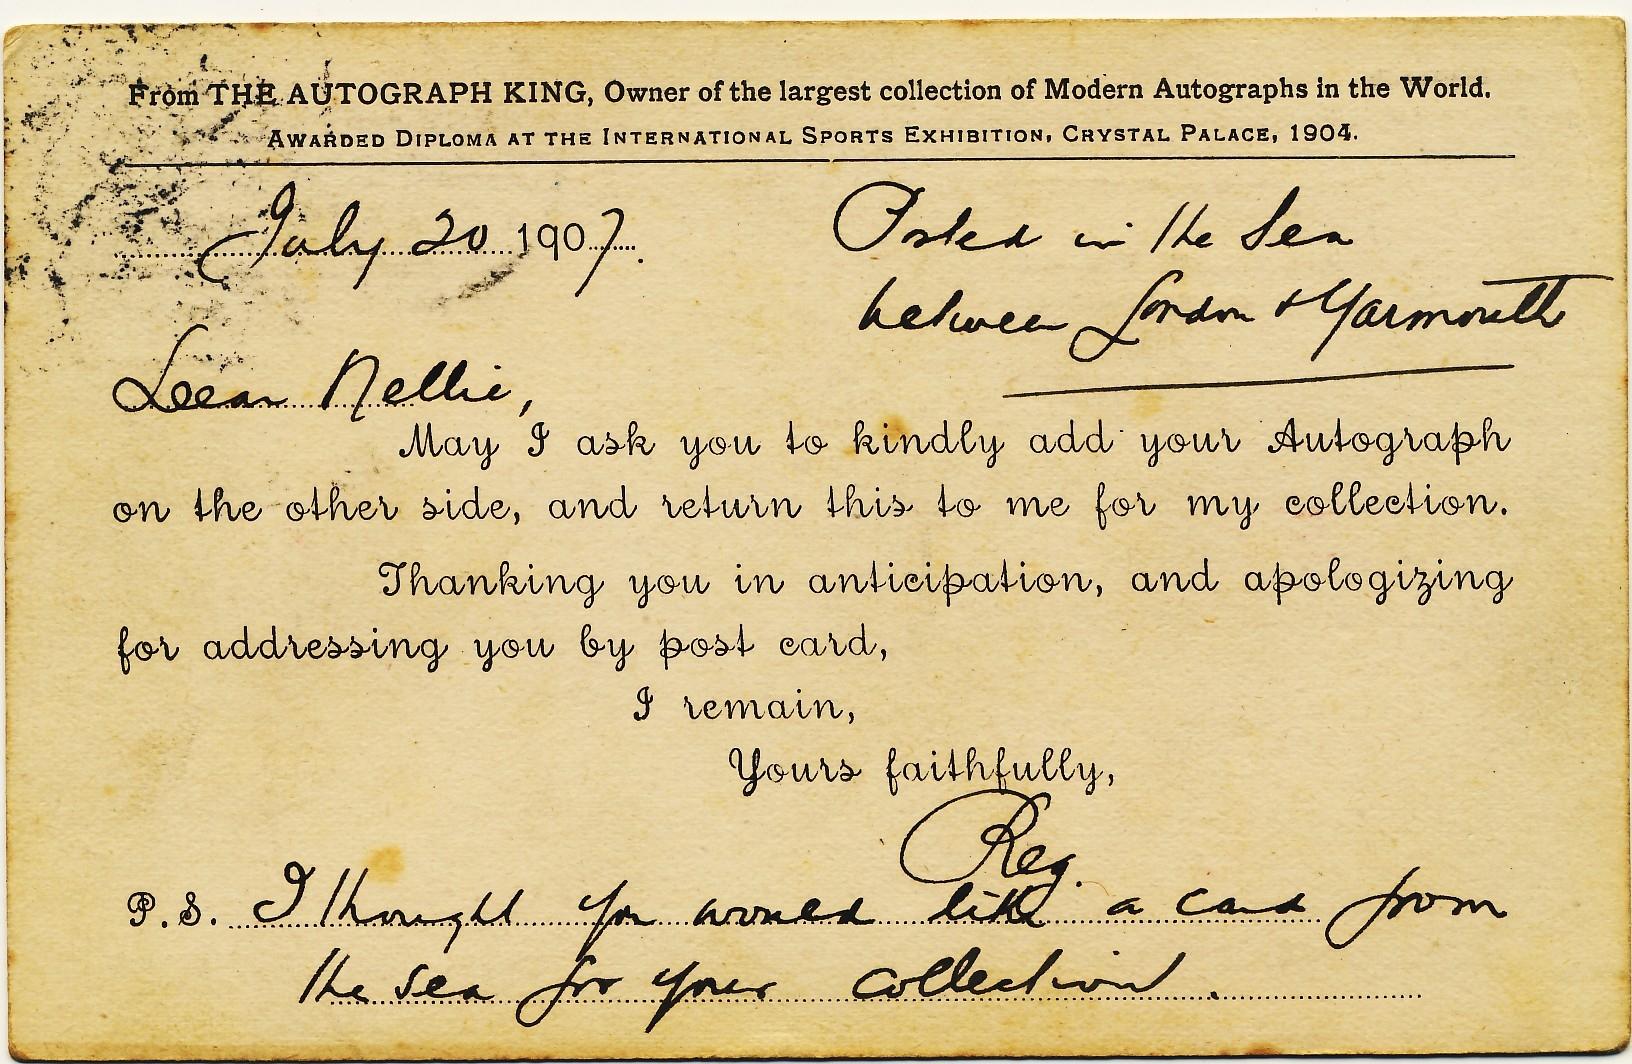 From THE AUTOGRAPH KING, Owner of the largest collection of Modern Autographs in the World.
AWARDED DIPLOMA AT THE INTERNATIONAL SPORTS EXHIBITION, CRYSTAL PALACE, 1904.
July 20 1907.
Posted in the Sea
between London & Yarmouth
Dear Nellie,
May I ask you to kindly add your Autograph
on the other side, and return this to me for my collection.
Thanking you in anticipation, and apologizing
for addressing you by post card,
I remain,
Yours faithfully,
Reg.
P.S. I thought you would like a card from
the sea for your collection.